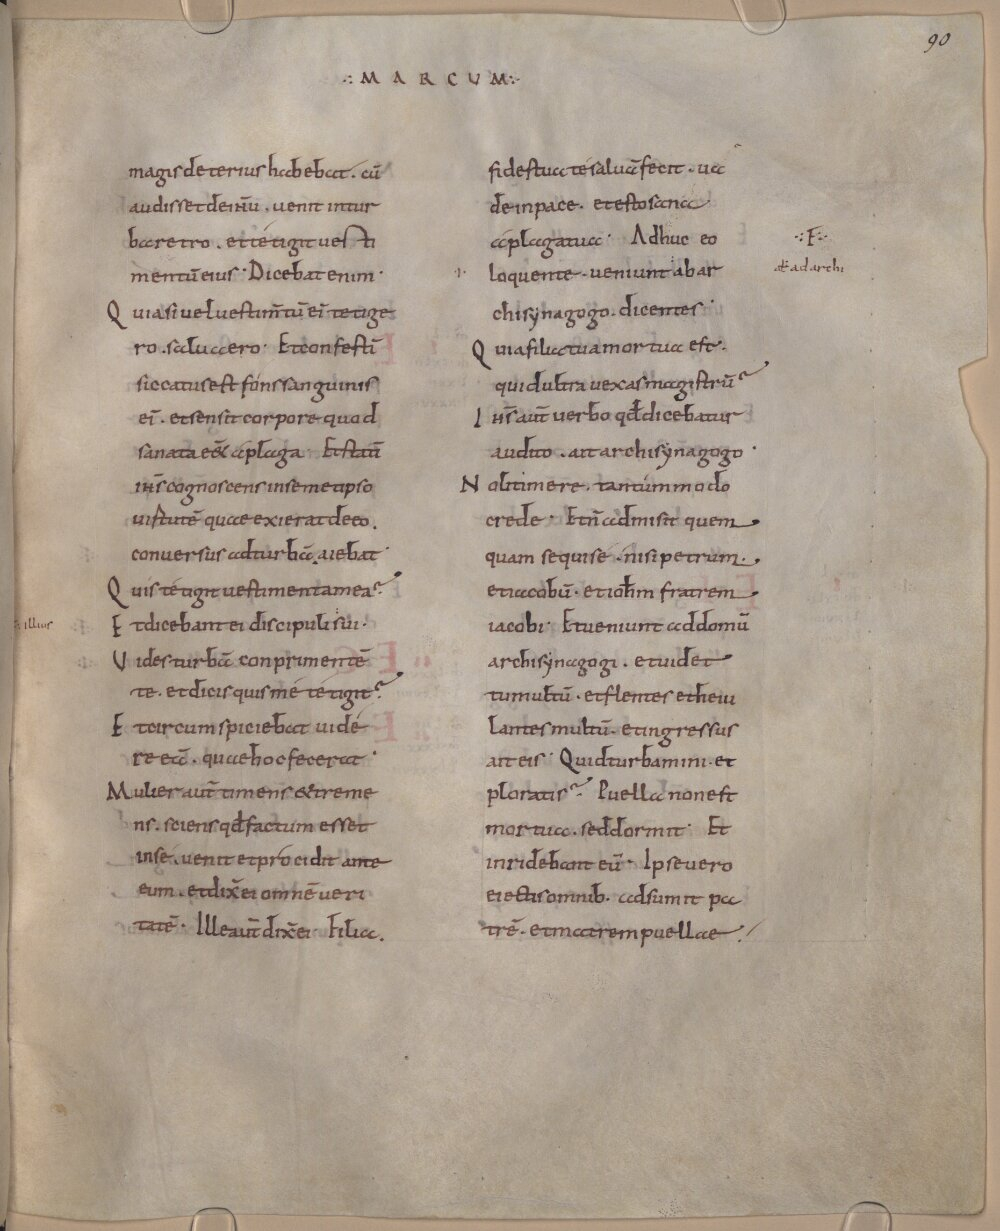 90
·:MARCUM:·
magis deterius habebat. cū
audisset de ihū. venit in tur
ba retro. et tetigit vesti
mentū eius· Dicebat enim·
Quia si vel vestim̄tū ei' tetige
ro. salva ero· Et confesti
siccatus est fons sanguinis
ei'. et sensit corpore quod
sanata eēt a plaga· Et statī
ihs cognoscens in semetipso
virtutē quae exierat de eo.
conversus ad turbā, aiebat·
Quis tetigit vestimenta mea?
Et dicebant ei discipuli sui·
illius
Vides turbā conprimentē
te. et dicis quis me tetigit?
Et circumspiciebat vide
re eā. quae hoc fecerat·
Mulier aut̄ timens & treme
ns. sciens qđ factum esset
in se. venit et procidit ante
eum. et dix̄ ei omnē veri
tatē· Ille aut̄ dix̄ ei· Filia.
fides tua te salvā fecit. va
de in pace. et esto sana
a plaga tua· Adhuc eo
·:F:·
loquente. veniunt ab ar
ad archi
chisynagogo. dicentes·
Quia filia tua mortua est·
quid ultra vexas magistrū?
Ihs aut̄ verbo qđ dicebatur
audito. ait archisynagogo·
Noli timere. tantummodo
crede· Et n̄ admisit quem
quam se qui se. nisi petrum.
et iacobū. et ioh̄m fratrem
iacobi· Et veniunt ad domū
archisynagogi. et videt
tumultū. et flentes et heiu
lantes multū. et ingressus
ait eis· Quid turbamini. et
ploratis? Puella non est
mortua. sed dormit· Et
inridebant eū· Ipse vero
eiectis omnib. adsumit pa
trē. et matrem puellae.